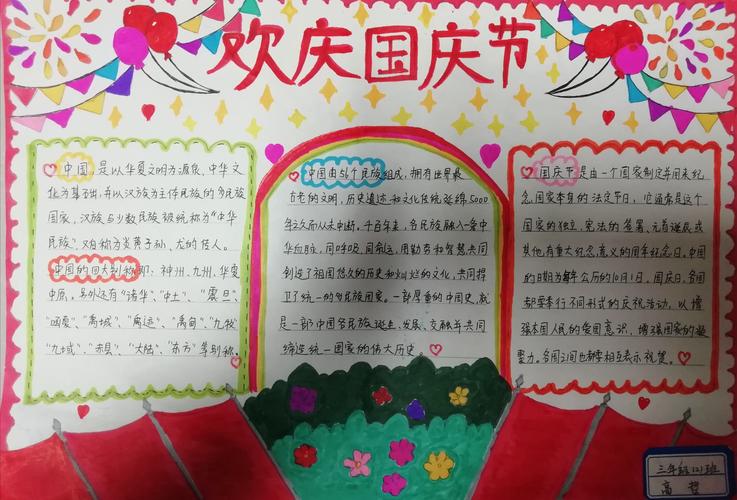 欢庆国庆节
中国是以华夏文明为源泉、中华文
化为基础,并以汉族为主体民族的多民族
国家,汉族与少数民族被统称为“中华
民族”,又自称为炎黄子孙、龙的传人。
中国的四大别称即:神州、九州、华夏
中原,另外还有“诸华”、“中土”、“震旦”、
“函夏”、“禹城”、“禹迹”、“禹甸”、“九牧”
“九域”、“赤县”、“大陆”、“东方”等别称。
中国由56个民族组成,拥有世界最
古老的文明,历史遗迹和文化传统延绵5000
年之久而从未中断。千百年来,各民族融入一脉中
华血脉,同呼吸,同命运,用勤劳和智慧共同
创造了祖国悠久的历史和灿烂的文化,共同捍
卫了统一的多民族国家。一部厚重的中国史,就
是一部中国各民族诞生、发展、交融并共同
缔造统一国家的伟大历史。
国庆节是由一个国家制定并用来纪
念国家本身的法定节日,它通常是这个
国家的独立、宪法的签署、元首诞辰或
其他有重大纪念意义的周年纪念日。中国
的日期为每年公历的10月1日,国庆日,各国
都要举行不同形式的庆祝活动,以增
强本国人民的爱国意识,增强国家的凝
聚力。各国之间也都要相互表示祝贺。
三年级(2)班
高哲